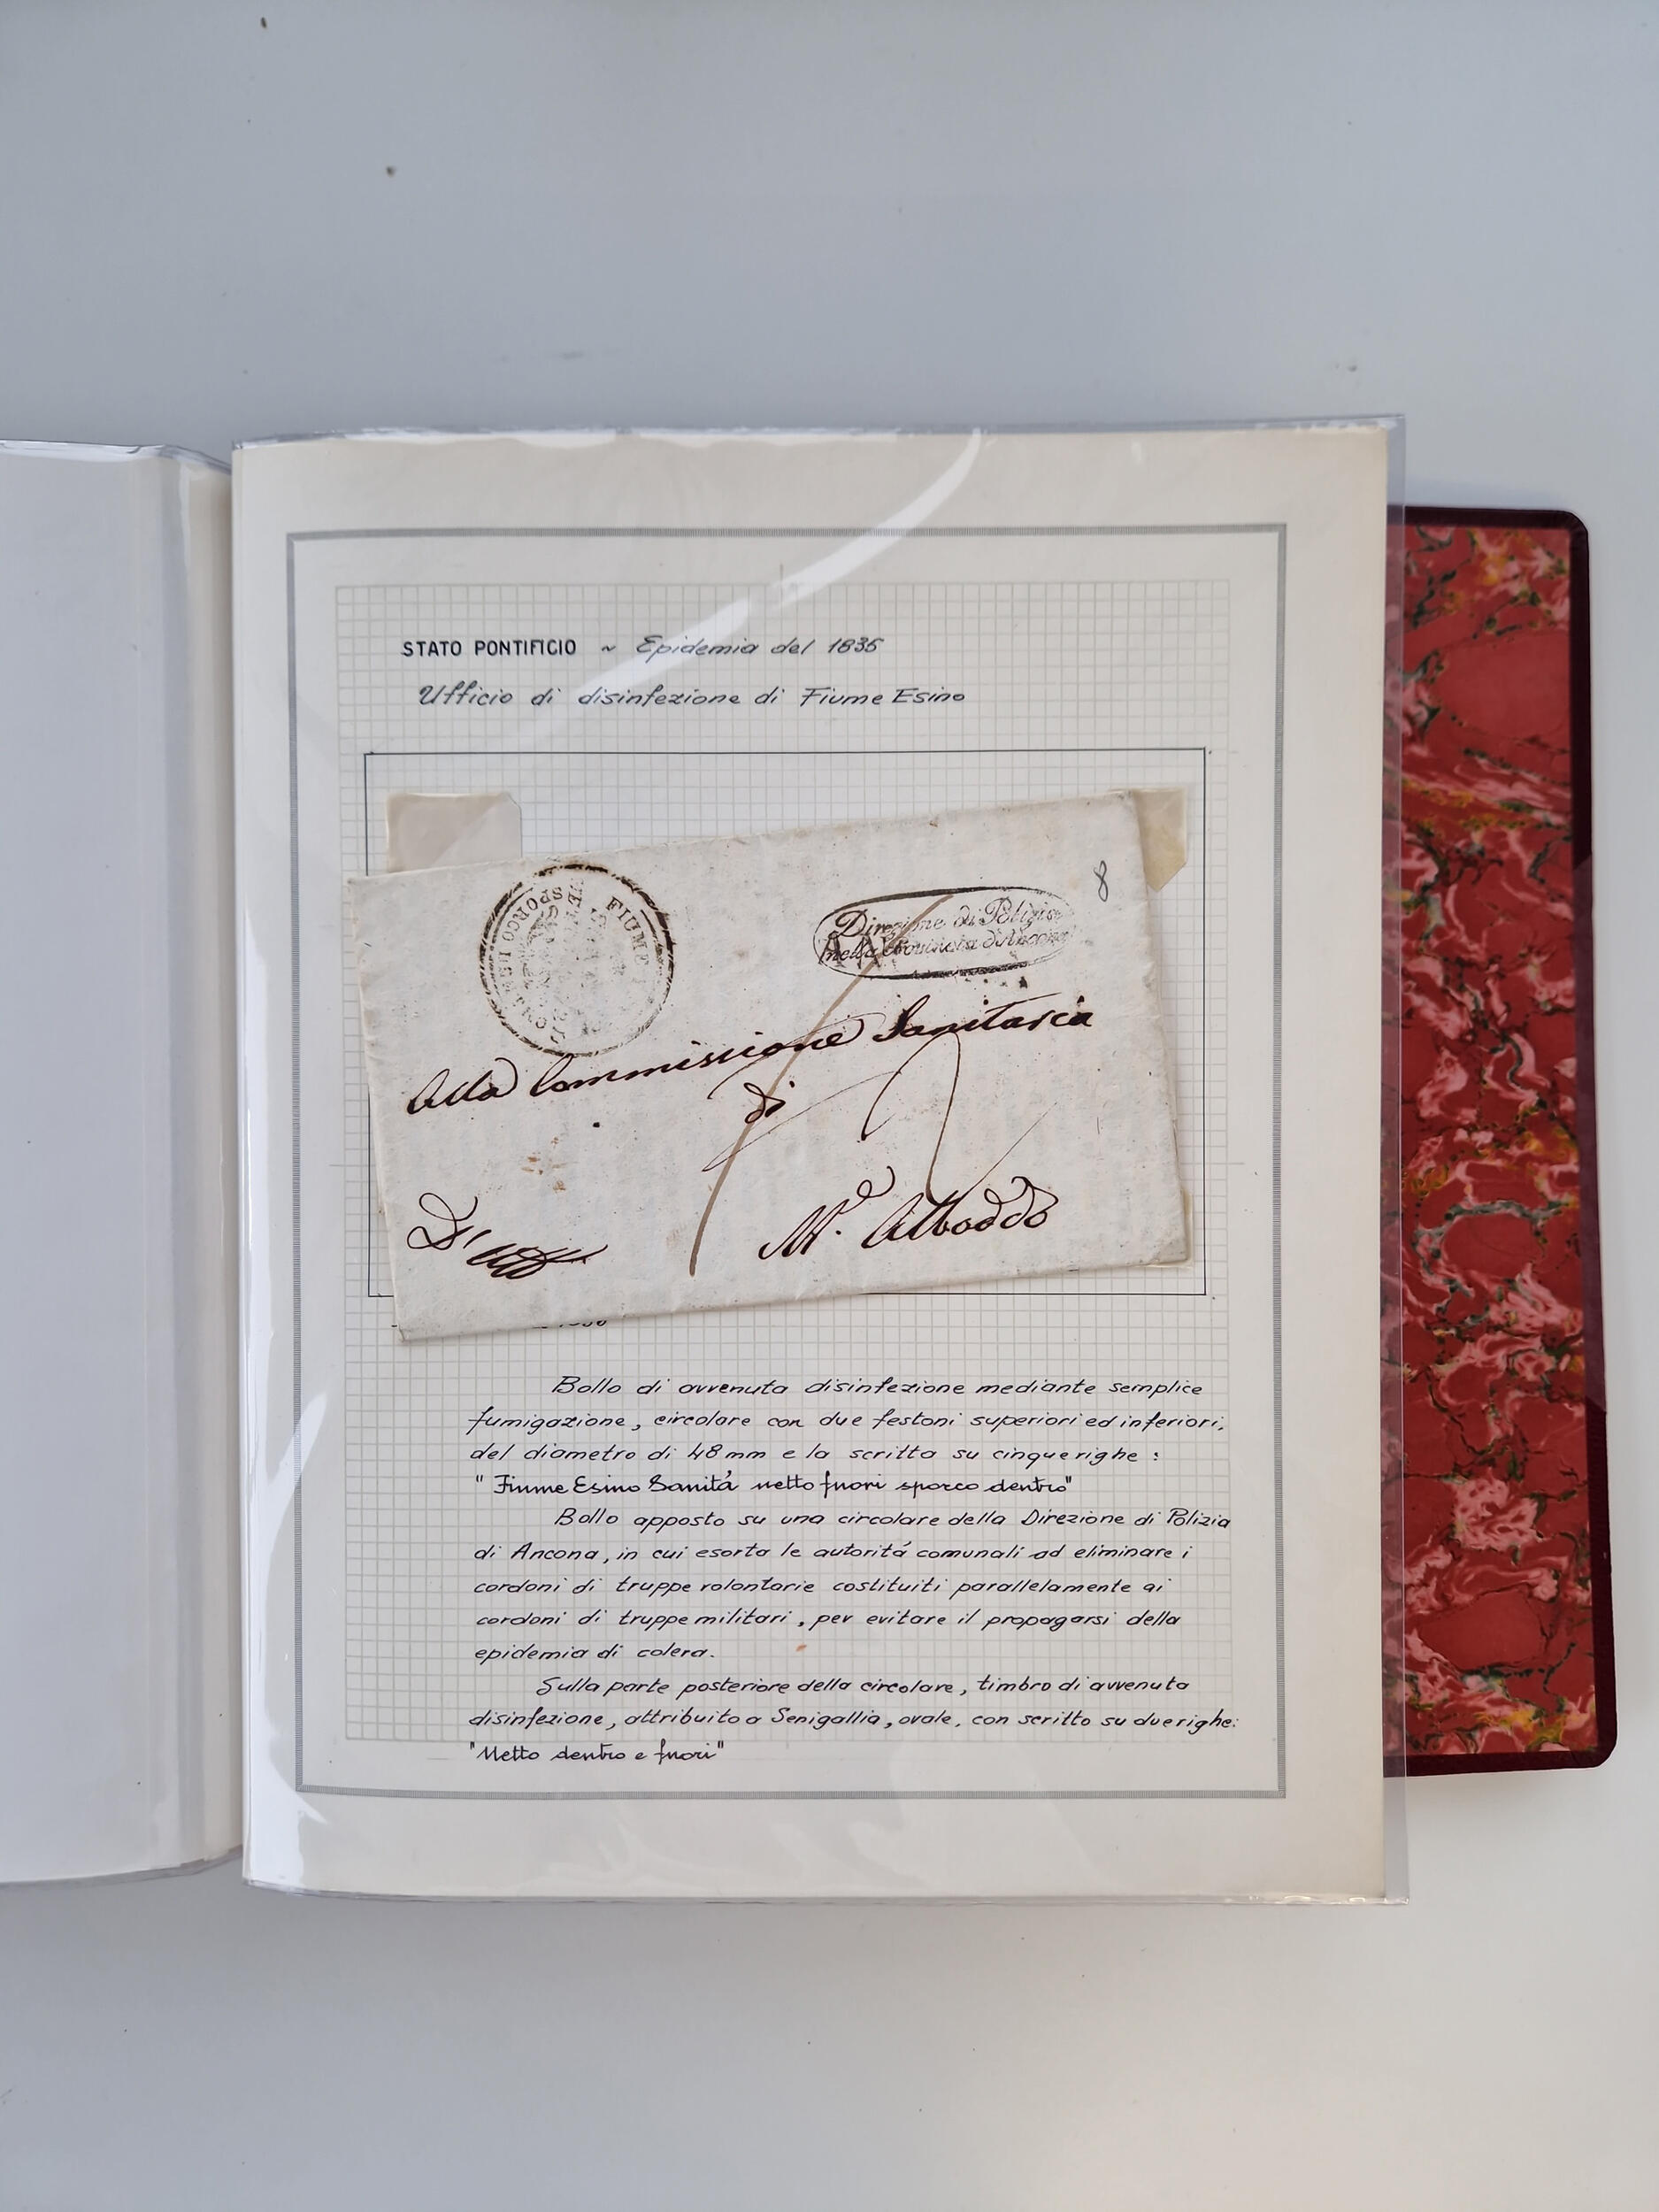 STATO PONTIFICIO ~ Epidemia del 1836
Ufficio di disinfezione di Fiume Esino
8
FIUME
SPORCO DEN
Direzione di Polizia
nella Provincia d'Ancona
Alla Commissione Sanitaria
di
D'Uff
M. Alboddo
1836
Bollo di avvenuta disinfezione mediante semplice
fumigazione, circolare con due festoni superiori ed inferiori,
del diametro di 48 mm e la scritta su cinque righe :
" Fiume Esino Sanitá netto fuori sporco dentro"
Bollo apposto su una circolare della Direzione di Polizia
di Ancona, in cui esorta le autoritá comunali ad eliminare i
cordoni di truppe volontarie costituiti parallelamente ai
cordoni di truppe militari, per evitare il propagarsi della
epidemia di colera.
Sulla parte posteriore della circolare, timbro di avvenuta
disinfezione, attribuito a Senigallia, ovale, con scritto su due righe:
"Netto dentro e fuori"